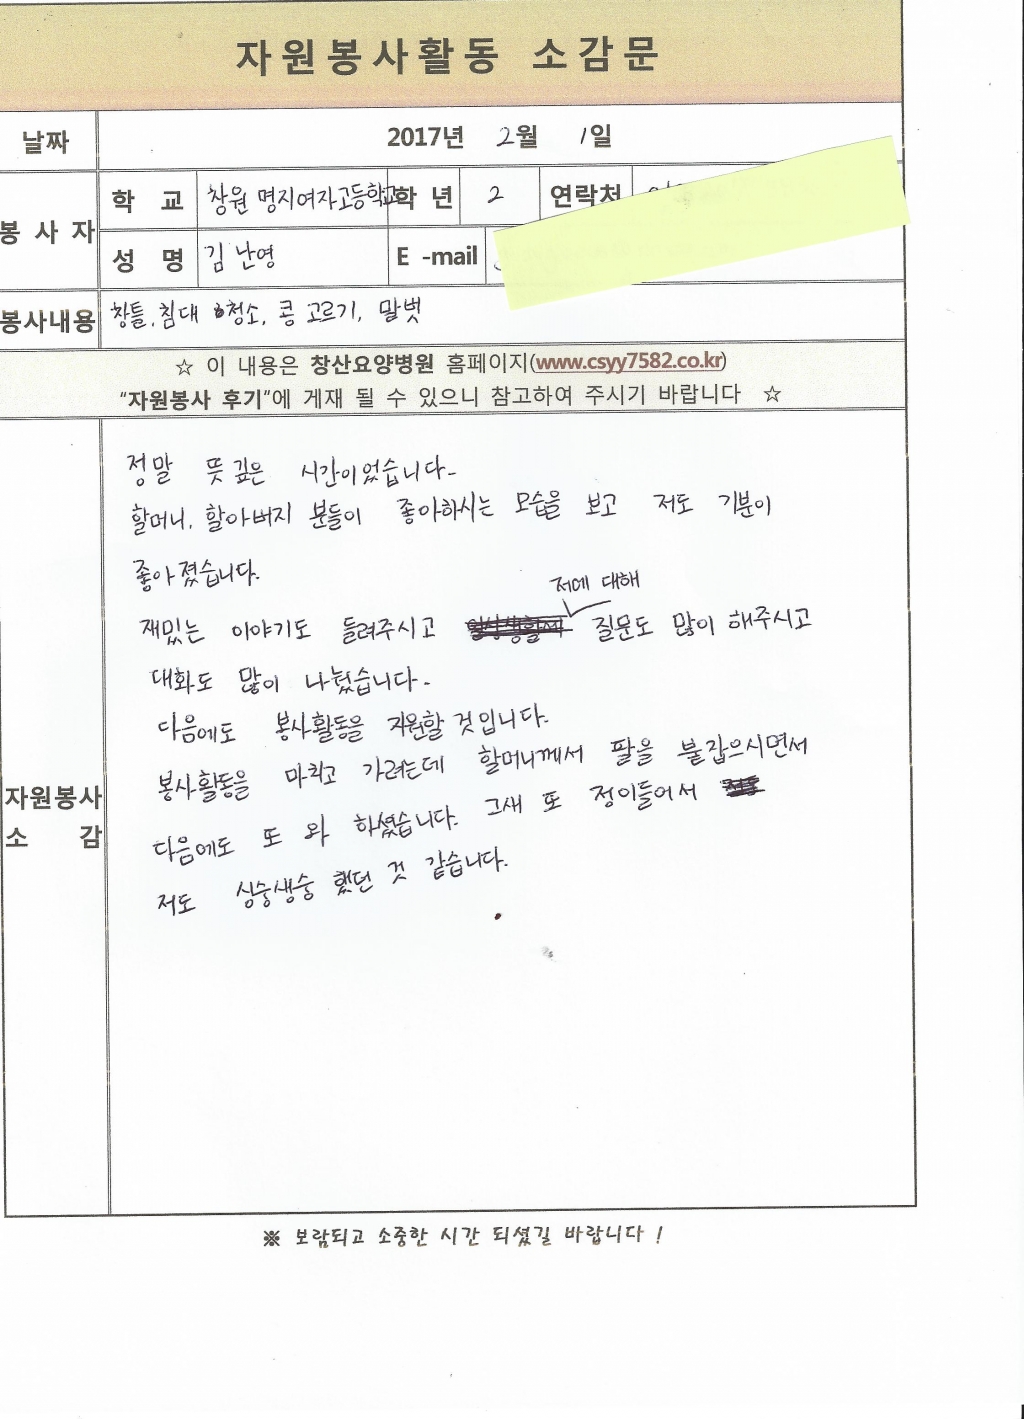 자원봉사활동 소감문
날짜 2017년 2월 1일
봉 사 자
학 교 창원 명지여자고등학교 학 년 2 연락처
성 명 김난영 E -mail
봉사내용 창틀, 침대 청소, 콩 고르기, 말벗
☆ 이 내용은 창산요양병원 홈페이지(www.csyy7582.co.kr)
"자원봉사 후기"에 게재 될 수 있으니 참고하여 주시기 바랍니다 ☆
자원봉사
소 감
정말 뜻 깊은 시간이었습니다.
할머니, 할아버지 분들이 좋아하시는 모습을 보고 저도 기분이
좋아졌습니다.
저에 대해
재밌는 이야기도 들려주시고 질문도 많이 해주시고
대화도 많이 나눴습니다.
다음에도 봉사활동을 지원할 것입니다.
봉사활동을 마치고 가려는데 할머니께서 팔을 붙잡으시면서
다음에도 또 와 하셨습니다. 그새 또 정이들어서
저도 싱숭생숭 했던 것 같습니다.
※ 보람되고 소중한 시간 되셨길 바랍니다 !